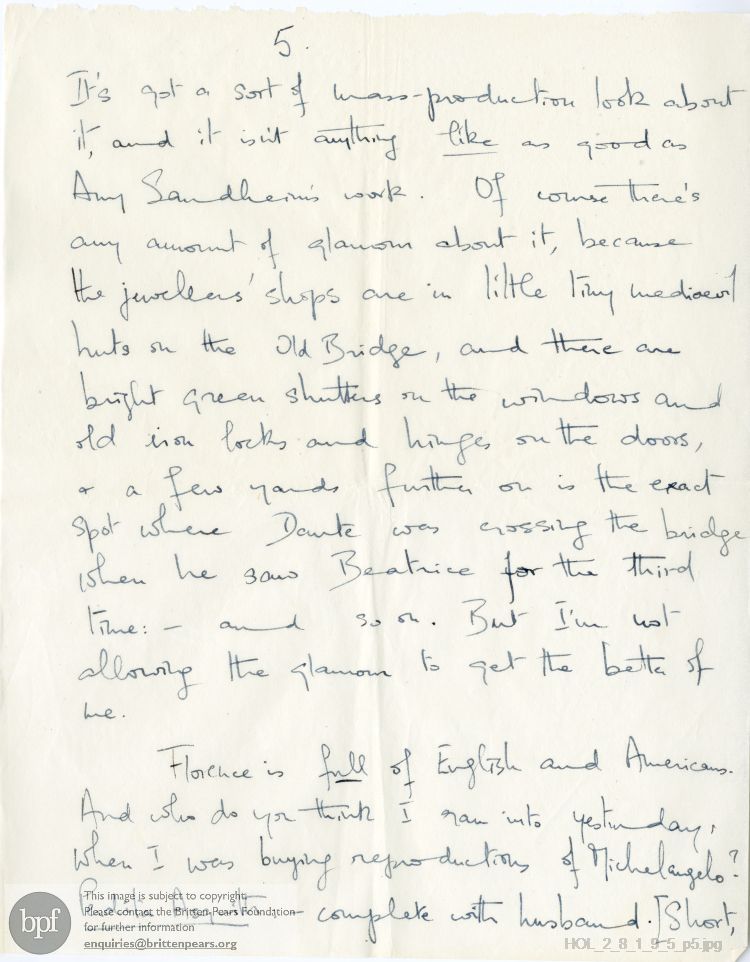 5.
It's got a sort of mass-production look about
it, and it isn't anything like as good as
Amy Sandheim's work. Of course there's
any amount of glamour about it, because
the jewellers' shops are in little tiny mediaevl
huts on the Old Bridge, and there are
bright green shutters on the windows and
old iron locks and hinges on the doors,
& a few yards further on is the exact
spot where Dante was crossing the bridge
when he saw Beatrice for the third
time: – and so on. But I'm not
allowing the glamour to get the better of
me.
Florence is full of English and Americans.
And who do you think I ran into yesterday,
when I was buying reproductions of Michelangelo?
– complete with husband. [Short,
bpf
This image is subject to copyright.
Please contact the Britten-Pears Foundation
for further information
enquiries@brittenpears.org
HOL_2_8_1_9_5_p5.jpg